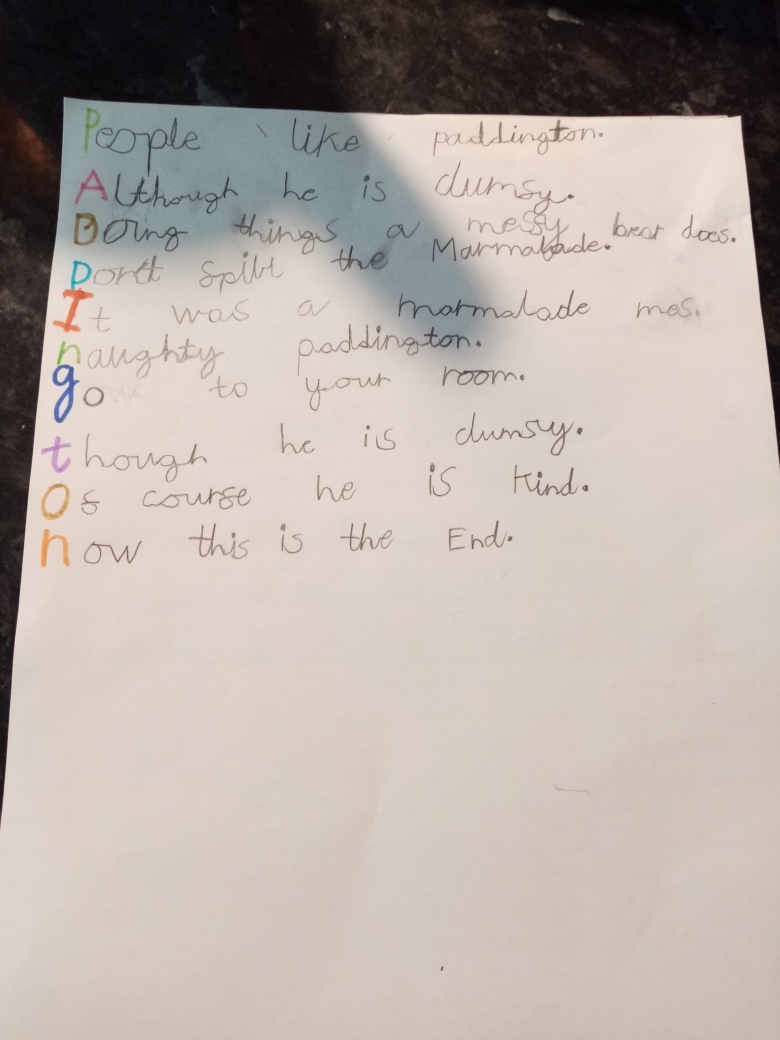 People like paddington.
Although he is clumsy.
Doing things a messy bear does.
Don't spill the Marmalade.
It was a marmalade mes.
naughty paddington.
go to your room.
though he is clumsy.
Of course he is kind.
now this is the End.